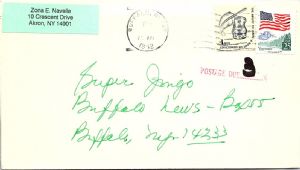 Zona E. Navelle
10 Crescent Drive
Akron, NY 14001
POSTAGE DUE
25
Super Jingo
Buffalo News - Box 55
Buffalo, N.Y. 14233